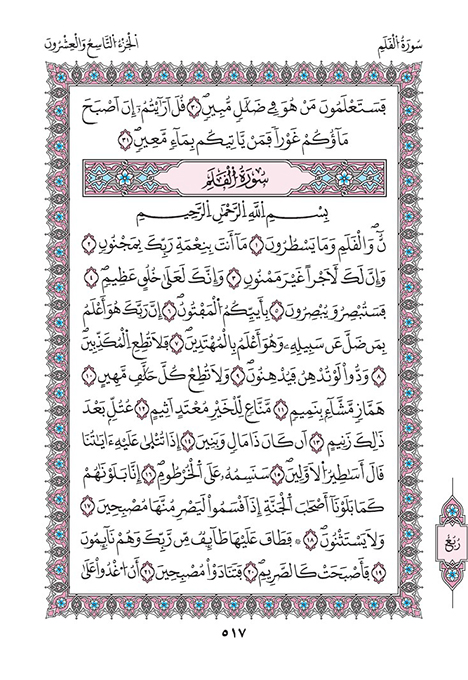 سُورَةُ الْقَلَمِ
الْجُزْءُ التَّاسِعُ وَالْعِشْرُونَ
فَسَتَعْلَمُونَ مَنْ هُوَ فِے ضَلَٰلٖ مُّبِينٖۖ ٣٠ قُلَ اَرَٰٓيْتُمُۥٓ إِنَ اَصْبَحَ
مَآؤُكُمْ غَوْراٗ فَمَنْ يَّاتِيكُم بِمَآءٖ مَّعِينِۢۖ ٣١
سُورَةُ الْقَلَمِ
بِسْمِ اللَّهِ الرَّحْمَٰنِ الرَّحِيمِ
نٓۖ وَالْقَلَمِ وَمَا يَسْطُرُونَ ١ مَآ أَنتَ بِنِعْمَةِ رَبِّكَ بِمَجْنُونٖۖ ٢
وَإِنَّ لَكَ لَأَجْراً غَيْرَ مَمْنُونٖۖ ٣ وَإِنَّكَ لَعَلَىٰ خُلُقٍ عَظِيمٖۖ ٤
فَسَتُبْصِرُ وَيُبْصِرُونَ ٥ بِأَييِّكُمُ الْمَفْتُونُۖ ٦ إِنَّ رَبَّكَ هُوَ أَعْلَمُ
بِمَن ضَلَّ عَن سَبِيلِهِۦ وَهُوَ أَعْلَمُ بِالْمُهْتَدِينَۖ ٧ فَلَا تُطِعِ الْمُكَذِّبِينَۖ
٨ وَدُّواْ لَوْ تُدْهِنُ فَيُدْهِنُونَۖ ٩ وَلَا تُطِعْ كُلَّ حَلَّافٖ مَّهِينٍ ١٠
هَمَّازٖ مَّشَّآءِۢ بِنَمِيمٖ ١١ مَّنَّاعٖ لِّلْخَيْرِ مُعْتَدٍ اَثِيمٍ ١٢ عُتُلِّۢ بَعْدَ
ذَٰلِكَ زَنِيمٍ ١٣ اَن كَانَ ذَا مَالٖ وَبَنِينَۖ ١٤ إِذَا تُتْلَىٰ عَلَيْهِ ءَايَٰتُنَا
قَالَ أَسَٰطِيرُ الَاوَّلِينَۖ ١٥ سَنَسِمُهُۥ عَلَى الْخُرْطُومِۖ ١٦ إِنَّا بَلَوْنَٰهُمْ
كَمَا بَلَوْنَآ أَصْحَٰبَ الْجَنَّةِ إِذَ اَقْسَمُواْ لَيَصْرِمُنَّهَا مُصْبِحِينَ ١٧
وَلَا يَسْتَثْنُونَۖ ١٨ ۞ فَطَافَ عَلَيْهَا طَآئِفٞ مِّن رَّبِّكَ وَهُمْ نَآئِمُونَ
١٩ فَأَصْبَحَتْ كَالصَّرِيمِۖ ٢٠ فَتَنَادَوْاْ مُصْبِحِينَ ٢١ أَنُ اغْدُواْ عَلَىٰ
رُبُع
٥١٧